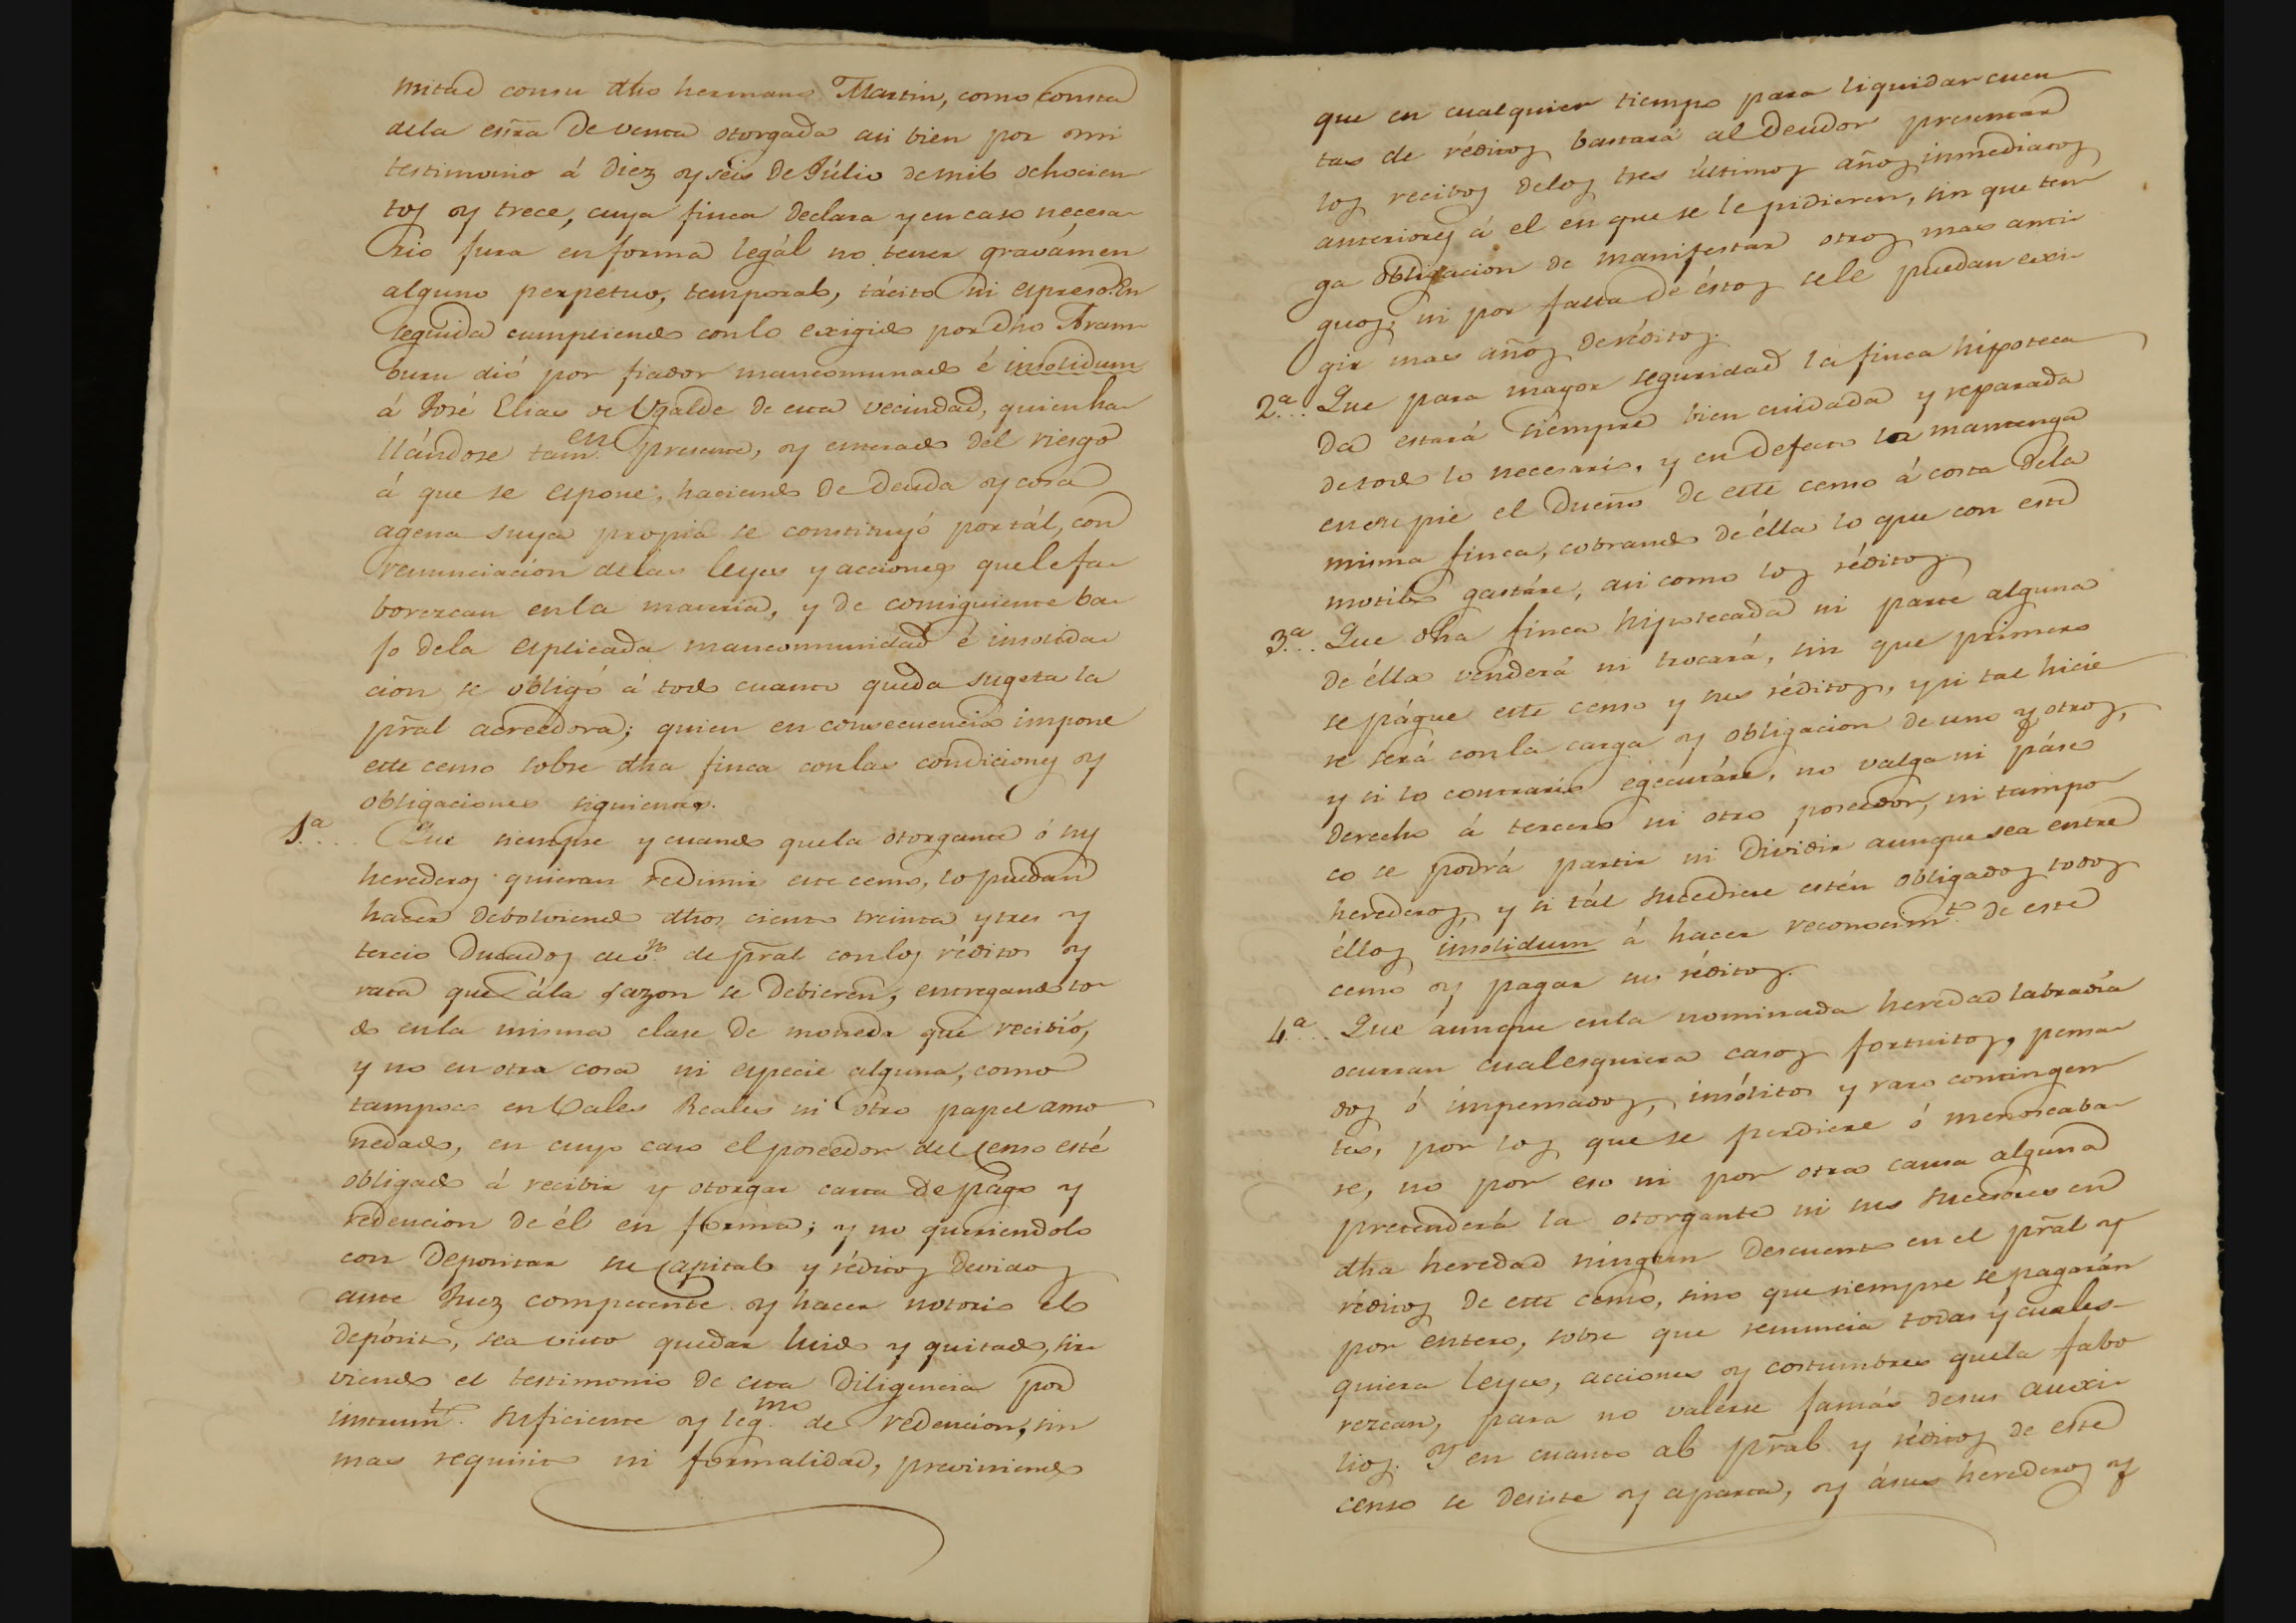 mitad con su dho hermano Martin, como consta
dela esrra de venta otorgada asi bien por mi
testimonio á diez y seis de Júlio de mil ochocien
tos y trece, cuya finca declara y en caso necesa
rio jura en forma legál no tener gravámen
alguno perpetuo, temporal, tácito ni espreso. En
seguida cumpliendo con lo exigido por dho Aram
buru dió por fiador mancomunado é insolidum
á José Elias de Ugalde de esta vecindad, quien ha
llándose tamen presente, y enterado del riesgo
á que se espone, haciendo de deuda y cosa
agena suya propia se constituyó por tál, con
renunciacion de las leyes y acciones que le fa
borezcan en la materia, y de consiguiente ba
jo dela esplicada mancomunidad é insolida
cion se obligó á todo cuanto queda sugeta la
pral acreedora; quien en consecuencia impone
este censo sobre dha finca con las condiciones y
obligaciones siguientes.
1.ª... Que siempre y cuando que la otorgante ó sus
herederos quieran redimir este censo, lo puedan
hacer debolviendo dhos ciento treinta y tres y
tercio Ducados de vn. de pral con los réditos y
rata que á la sazon se debieren, entregando to
do en la misma clase de moneda que recibió,
y no en otra cosa ni especie alguna, como
tampoco en Vales Reales ni otro papel amo
nedado, en cuyo caso el poseedor del censo esté
obligado á recibir y otorgar carta de págo y
redencion de él en forma; y no queriendolo
con depositar su capital y réditos devidos
ante Juez competente y hacer notorio el
depósito, sea visto quedar luido y quitado, sir
viendo el testimonio de esta diligencia por
instrumto. suficiente y legmo. de redencion, sin
mas requisito ni formalidad, previniendo
que en cualquier tiempo para liquidar cuen
tas de réditos bastará al deudor presentar
los recibos de los tres últimos años inmediatos
anteriores á el en que se le pidieren, sin que ten
ga obligacion de manifestar otros mas anti
guos, ni por falta de éstos se le puedan exi
gir mas años de réditos.
2.ª... Que para mayor seguridad la finca hipoteca
da estará siempre bien cuidada y reparada
de todo lo necesario, y en defecto la mantenga
en su pie el dueño de este censo á costa dela
misma finca, cobrando de élla lo que con este
motibo gastáre, asi como los réditos.
3.ª... Que dha finca hipotecada ni parte alguna
de élla venderá ni trocará, sin que primero
se págue este censo y sus réditos, y si tal hicie
re será con la carga y obligacion de uno y otros,
y si lo contrario egecutáre, no valga ni páse
derecho á tercero ni otro poseedor, ni tampo
co se podrá partir ni dividir aunque sea entre
herederos, y si tál sucediere estén obligados todos
éllos insolidum á hacer reconocimto. de este
censo y pagar sus réditos.
4.ª... Que aunque en la nominada heredad labradía
ocurran cualesquiera casos fortuitos, pensa
dos ó impensados, insólitos y raro contingen
tes, por los que se perdiere ó menoscaba
re, no por eso ni por otra causa alguna
pretenderá la otorgante ni sus sucesores en
dha heredad ningun descuento en el pral y
réditos de este censo, sino que siempre se pagarán
por entero, sobre que renuncia todas y cuales
quiera leyes, acciones y costumbres que la fabo
rezcan, para no valerse jamás de sus auxi
lios. Y en cuanto al pral y réditos de este
censo se desiste y aparta, y á sus herederos y